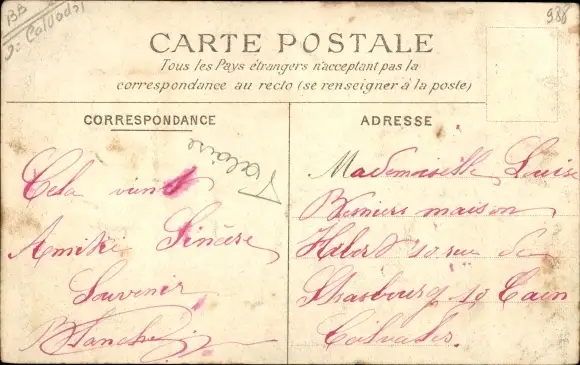 BB
Calvados
988
CARTE POSTALE
Tous les Pays étrangers n'acceptant pas la
correspondance au recto (se renseigner à la poste)
CORRESPONDANCE
Cela vient
Amitié Sincère
Souvenir
Blanche
ADRESSE
Mademoiselle Luise
Berniers maison
10 rue de
Strasbourg 10 Caen
Calvados.